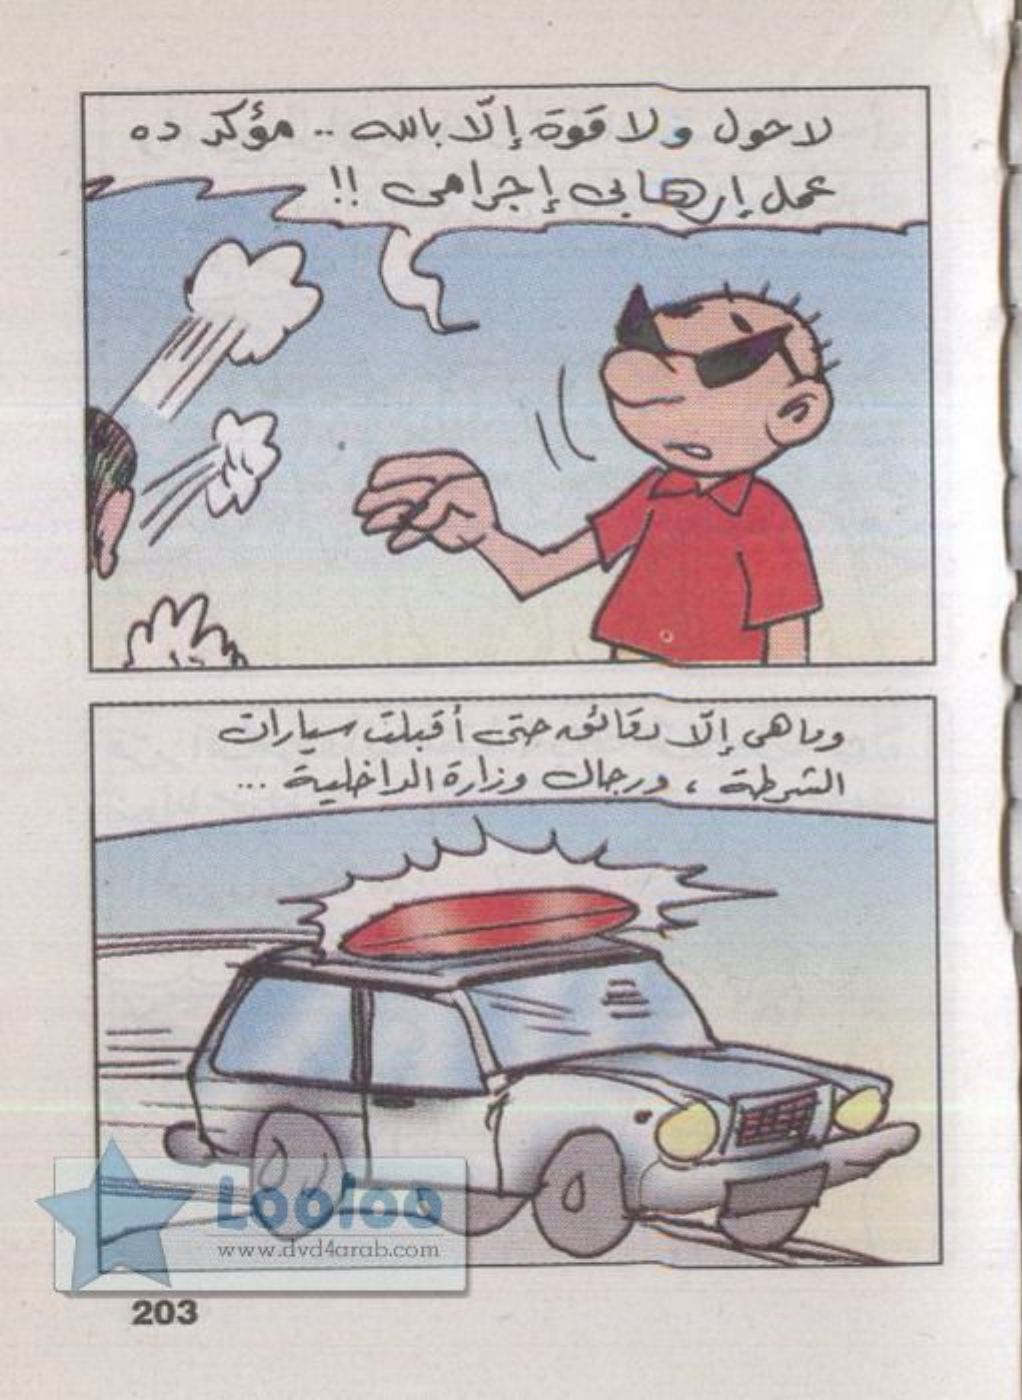 لا حول ولا قوة إلّا بالله .. مؤكد ده
عمل إرهابى إجرامى !!
وما هى إلّا دقائق حتى أقبلت سيارات
الشرطة ، ورجال وزارة الداخلية ...
Looloo
www.dvd4arab.com
203